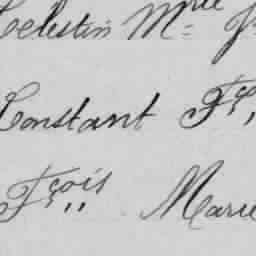 Celestin Mie
Constant Fç
Fçois Marie